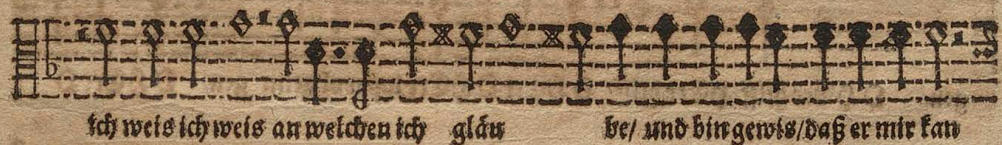 ich weis ich weis an welchen ich gläu be/ und bin gewis/ daß er mir kan